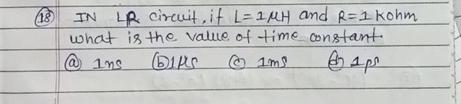 (18) IN LR circuit, if L=1μH and R=1 kohm
what is the value of time constant
(a) 1ns (b) 1μs (c) 1ms (d) 1ps